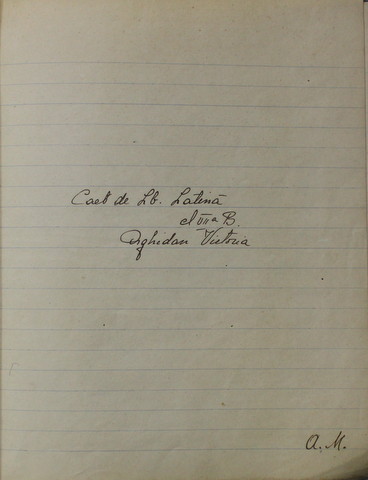 Caet de Lb. Latină
cl VII a B.
Arghidan Victoria
A. M.